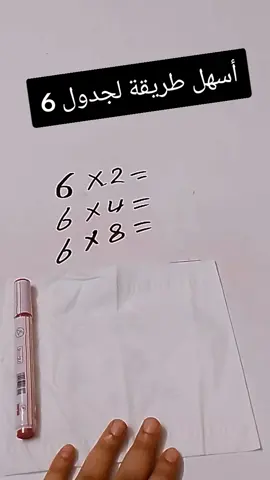 أسهل طريقة لجدول 6
6 × 2 =
6 × 4 =
6 × 8 =